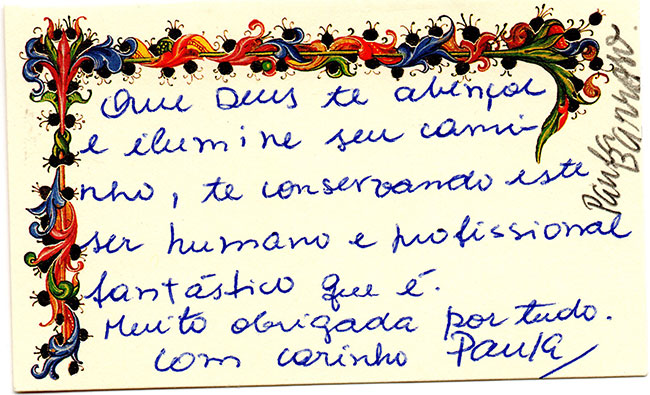 Que Deus te abençoe
e ilumine seu cami-
nho, te conservando este
ser humano e profissional
fantástico que é.
Muito obrigada por tudo.
Com carinho Paula
Paula